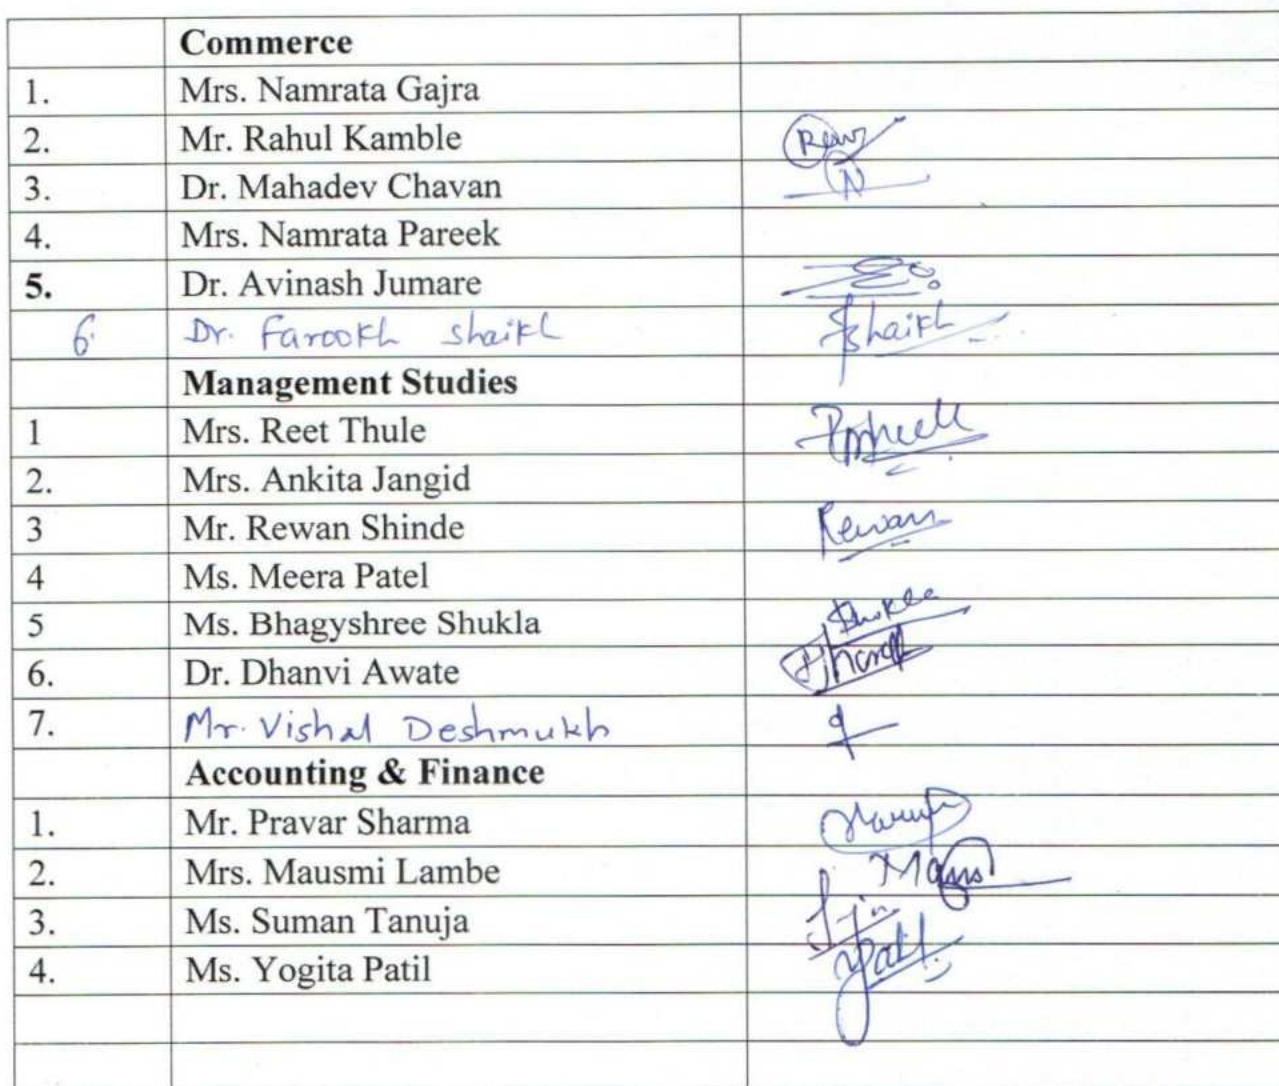 Commerce
1. Mrs. Namrata Gajra
2. Mr. Rahul Kamble
3. Dr. Mahadev Chavan
4. Mrs. Namrata Pareek
5. Dr. Avinash Jumare
6. Dr. Farookh Shaikh Shaikh
Management Studies
1 Mrs. Reet Thule
2. Mrs. Ankita Jangid
3 Mr. Rewan Shinde Rewan
4 Ms. Meera Patel
5 Ms. Bhagyshree Shukla Shukla
6. Dr. Dhanvi Awate
7. Mr. Vishal Deshmukh
Accounting & Finance
1. Mr. Pravar Sharma
2. Mrs. Mausmi Lambe
3. Ms. Suman Tanuja
4. Ms. Yogita Patil Patil